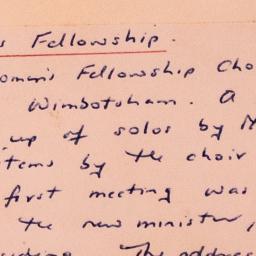 s Fellowship.
oman's Fellowship Cho
Wimbotsham. A
up of solos by M
items by the choir
first meeting was
the new minister,
The address